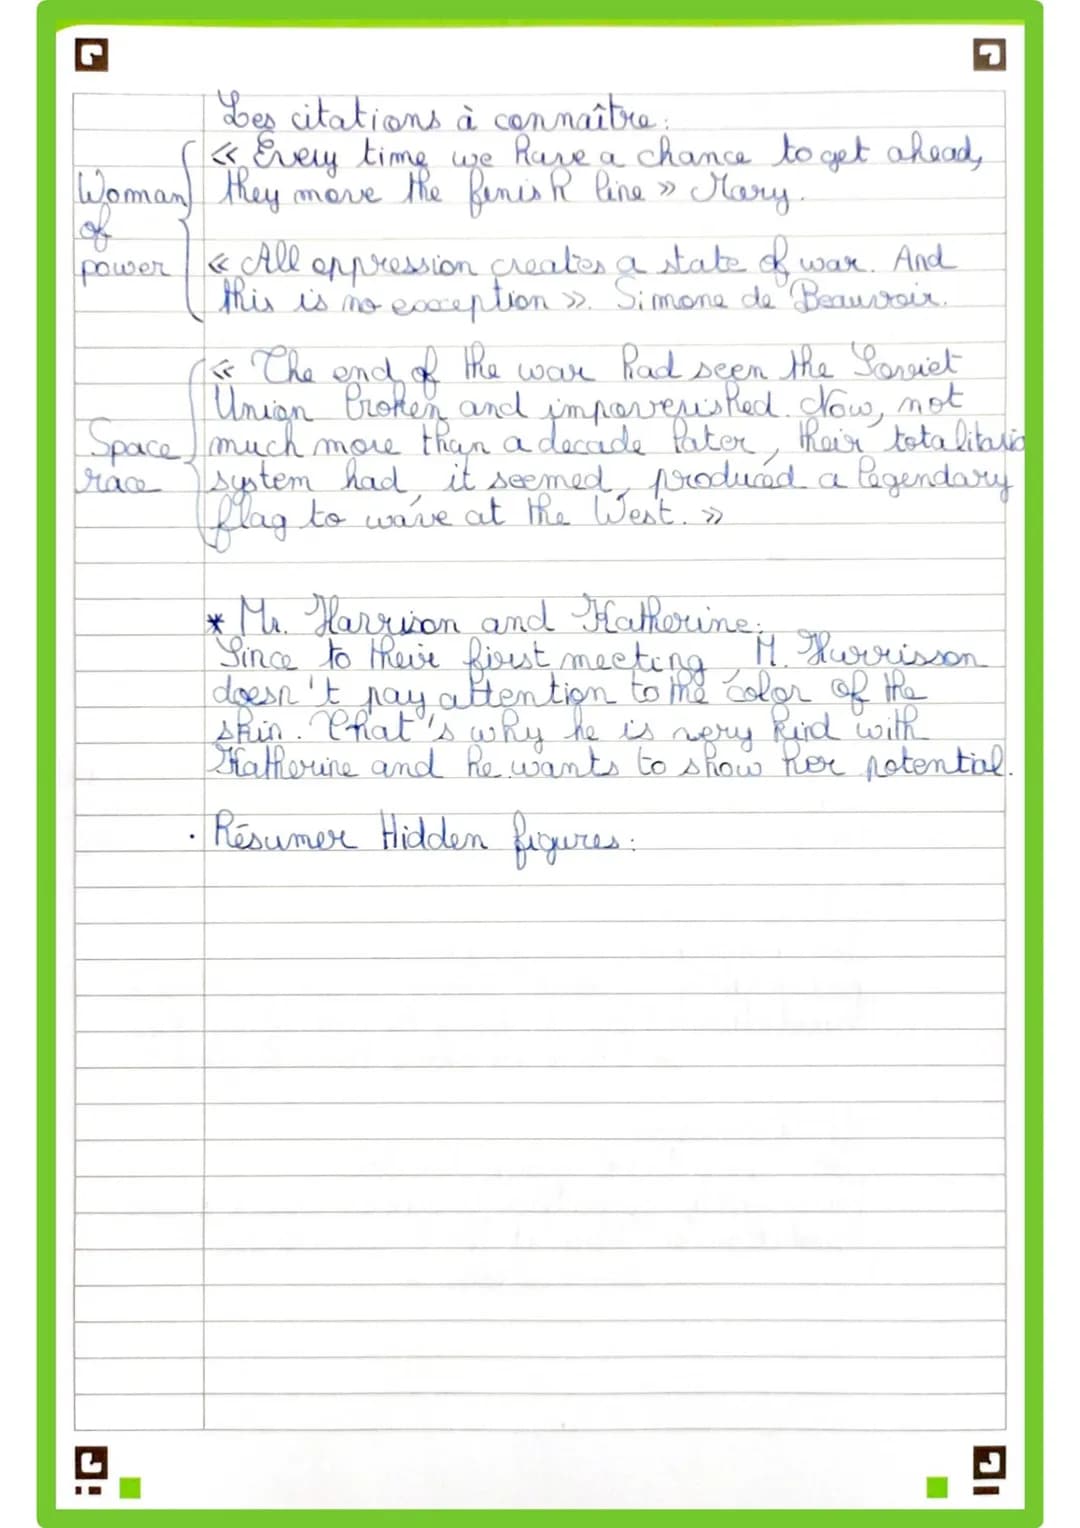 Les citations à connaître:
« Every time we have a chance to get ahead,
they move the finish line » Mary.
Woman
of
power
« All oppression creates a state of war. And
this is no exception ». Simone de Beauvoir.
« The end of the war had seen the Soviet
Union broken and impoverished. Now, not
Space much more than a decade later, their totalitario
race system had, it seemed, produced a legendary
flag to wave at the West. »
* Mr. Harrison and Katherine:
Since to their first meeting, M. Harrisson
doesn't pay attention to the color of the
skin. That's why he is very kind with
Katherine and he wants to show her potential.
· Résumer Hidden figures: